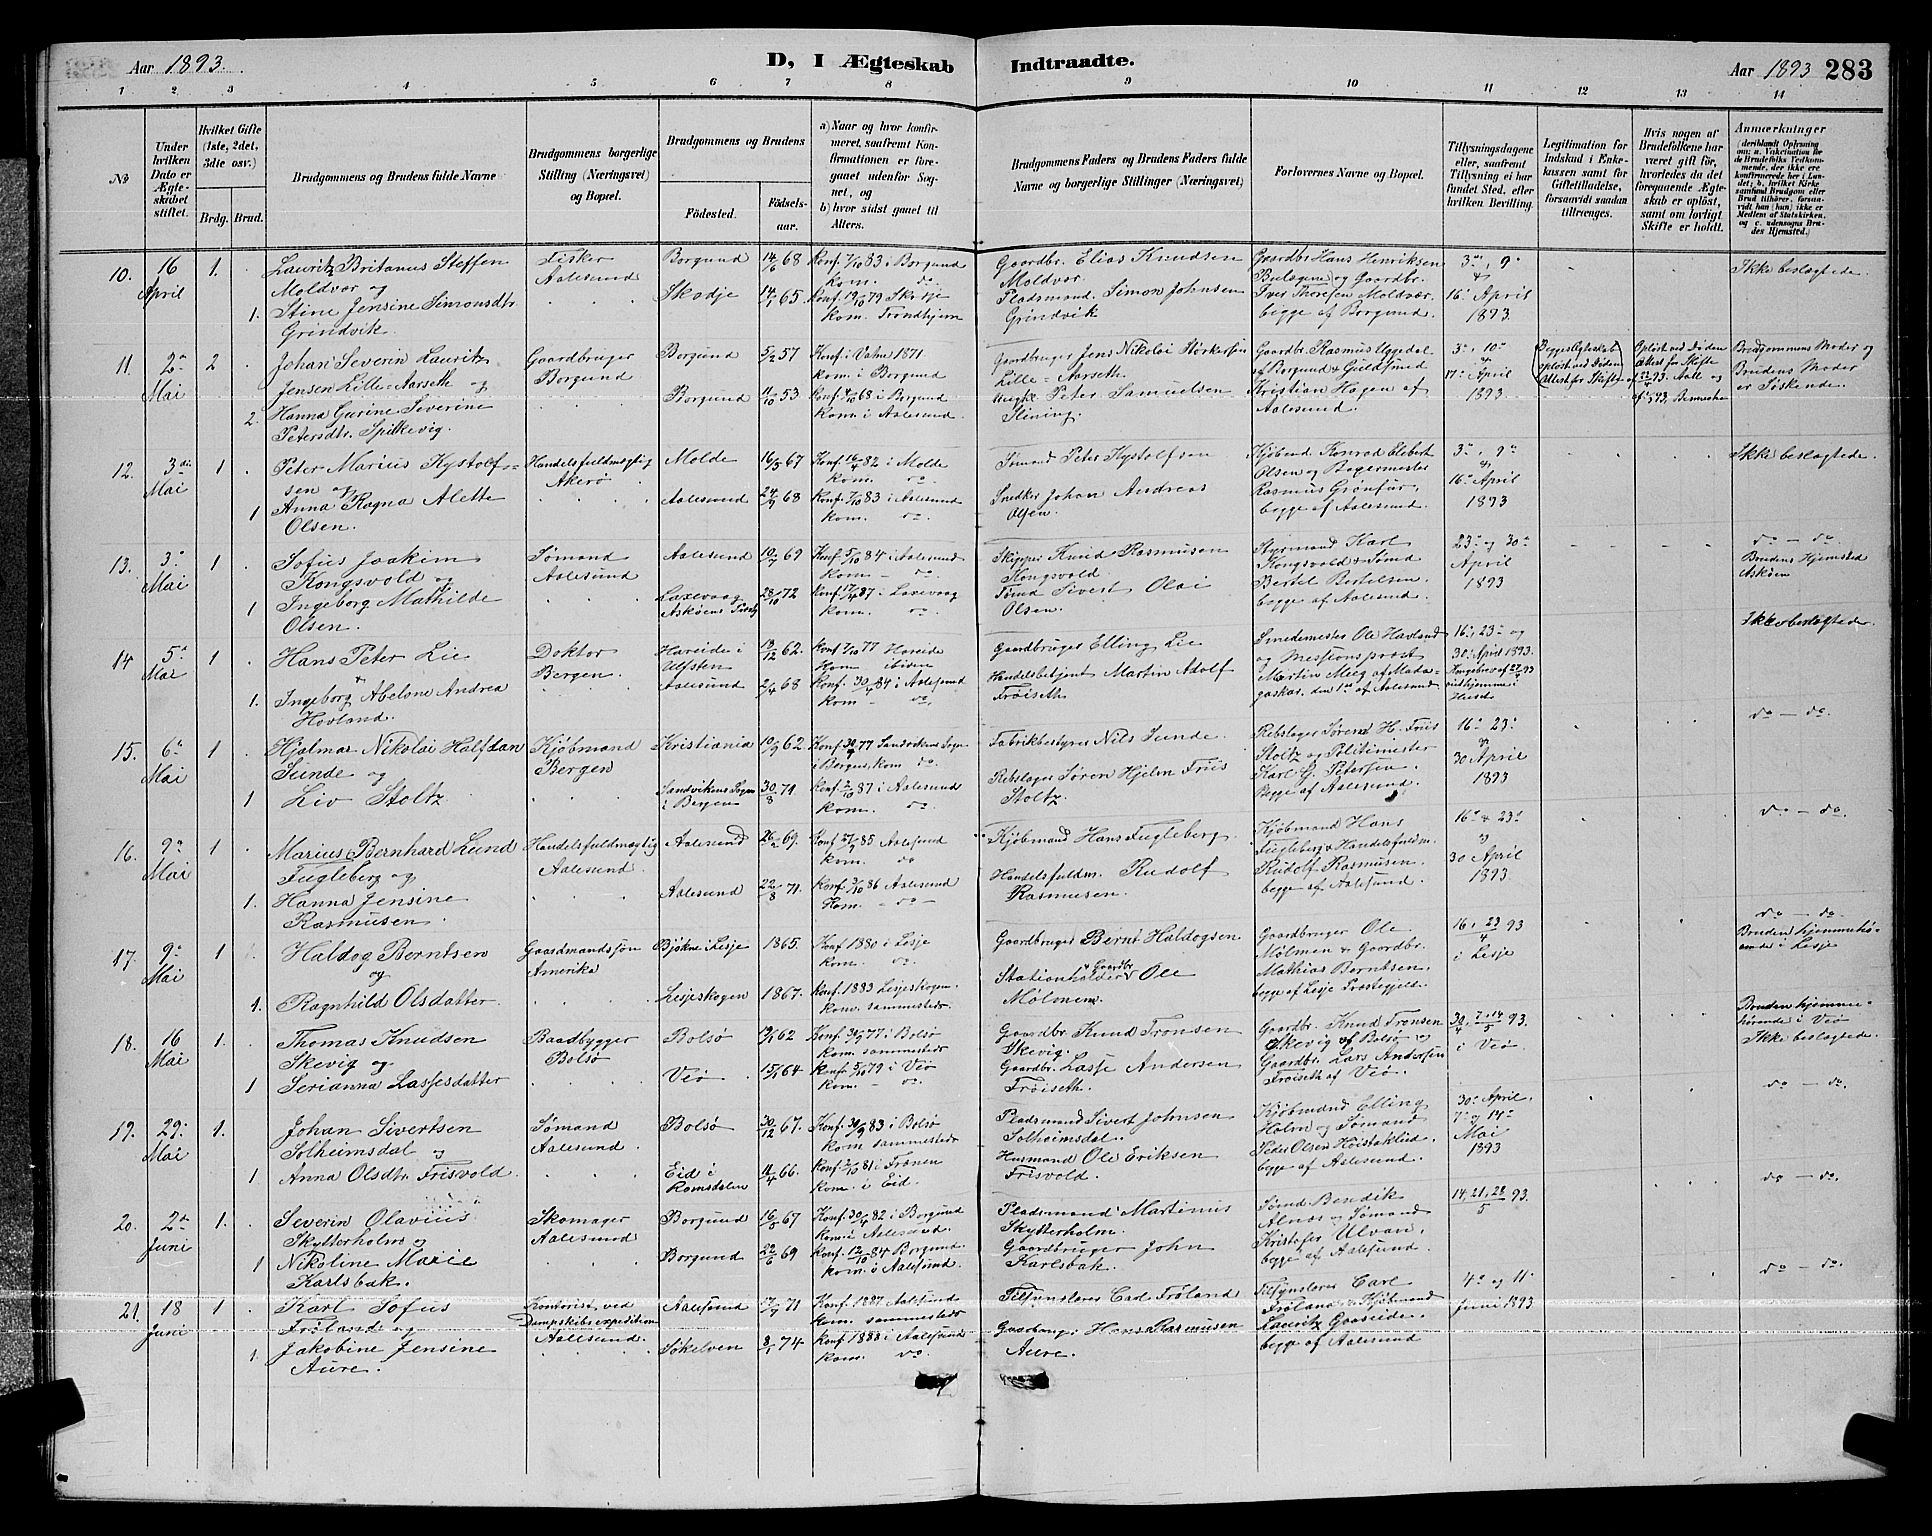 Aar 1893. D, I Ægteskab Indtraadte. Aar 1893 283
1 2 3 4 5 6 7 8 9 10 11 12 13 14
No
Under hvilken Dato er Ægteskabet stiftet.
Hvilket Gifte (1ste, 2det, 3die osv.)
Brdg. Brud.
Brudgommens og Brudens fulde Navne
Brudgommens borgerlige Stilling (Næringsvei) og Bopæl.
Brudgommens og Brudens
Födested. Födselsaar.
a) Naar og hvor konfirmeret, saafremt Konfirmationen er foregaaet udenfor Sognet, og
b) hvor sidst gaaet til Alters.
Brudgommens Faders og Brudens Faders fulde Navne og borgerlige Stillinger (Næringsvei)
Forlovernes Navne og Bopæl.
Tillysningsdagene eller, saafremt Tillysning ei har fundet Sted, efter hvilken Bevilling.
Legitimation for Indskud i Enkekassen samt for Giftetilladelse, forsaavidt saadan tiltrænges.
Hvis nogen af Brudefolkene har været gift för, hvorledes da det foregaaende Ægteskab er oplöst, samt om lovligt Skifte er holdt.
Anmærkninger
(deriblandt Oplysning om: a. Vakcination for de Brudefolks Vedkommende, der ikke ere konfirmerede her i Landet; b. hvilket Kirkesamfund Brudgom eller Brud tilhörer, forsaavidt han (hun) ikke er Medlem af Statskirken, og c. udensogns Brudes Hjemsted.)
10. 16 April 1. Lauritz Britanus Steffen Moldvær og Fisker Aalesund Borgund 14/6 68 Konf. 7/10 83 i Borgund kom. do. Gaardbr. Elias Knudsen Moldvær Gaardbr Hans Henriksen Bulagene og Gaardbr. Iver Thoresen Moldvær, begge af Borgund. 3die, 9de & 16de April 1893. Ikke beslægtede.
1. Stine Jensine Simonsdtr. Grindvik. Skodje 14/1 65 Konf. 19/10 79 Skodje kom. Trondhjem Pladsmand. Simon Johnsen Grindvik
11. 2den Mai 2 Johan Severin Lauritz Jensen Lille-Aarseth og Gaardbruger Borgund Borgund 5/2 57 Konf. i Volda 1871. kom. i Borgund Gaardbruger Jens Nikolai Lille-Aarseth Gaardbr. Rasmus Uggedal af Borgund & Guldsmed Kristian Hagen af Aalesund. 3de, 10de & 17de April 1893 Begge Ægteskab oplöst ved Döden Attest for Skifte Oplöst ved Döden Attest for Skifte Brudgommens Moder og Brudens Moder er Söskende.
2. Hanna Gurine Severine Petersdtr. Spilkevig. Borgund 11/10 53 Konf. 68 i Borgund Kom. i Aalesund. Ungk. Peter Samuelsen Slining.
12. 3die Mai 1. Peter Marius Kystolfsen og Handelsfuldmægtig Akerö Molde 16/5 67 Konf. 16/4 82 i Molde kom. do. Sömand Peter Kystolfsen Kjöbmd. Konrad Elebert Olsen og Bagermester Rasmus Grönfur, begge af Aalesund. 3de, 9de & 16de April 1893 Ikke beslægtede.
1 Anna Ragna Alette Olsen. Aalesund 24/9 68 Konf. 7/10 83 i Aalesund kom. do. Snedker Johan Andreas Olsen.
13. 3de Mai 1. Sofus Joakim Kongsvold og Sömand Aalesund Aalesund 10/7 69 Konf. 5/10 84 i Aalesund kom. - do. Skipper Knud Rasmusen Kongsvold Styrmand Karl Kongsvold & Sömd Bertel Bertelsen. begge af Aalesund. 23de og 30de April 1893 do - do. Brudens Hjemsted Asköen
1 Ingeborg Mathilde Olsen. Laxevaag Asköens 28/10 72 Konf. 17/4 87 i Laxevaag kom. do. Sömd Sivert Olai Olsen.
14 5te Mai 1. Hans Peter Lie & Doktor Bergen. Hareide i Ulfsten 13/12 62. Konf. 7/10 77 Hareide Kom ibiden Gaardbruger Elling Lie Smedemester Ole Havland og Missionsprest Martin Meeg af Madagaskar, den 1ste af Aalesund 16de, 23de og 30te April 1893. Ikke beslægtede.
1. Ingeborg Abelone Andrea Hovland. Aalesund 2/4 68 Konf. 30/4 84 i Aalesund kom - do. Handelsbetjent Martin Adolf Fröiseth
15. 6te Mai 1. Hjalmar Nikolai Halfdan Sunde og Kjöbmand Bergen Kristiania 19/9 62. Konf. 30/9 77 Sandvikens Sogn i Bergen, kom do. Fabrikbestyrer Nils Sunde. Rebslager Sören H. Friis Stoltz og Politimester Karl G. Petersen. Begge af Aalesund. 16de 23de & 30 April 1893 do - do.
1 Liv Stoltz. Sandvikens Sogn i Bergen 30/8 71. konf. 2/10 87 i Aalesund kom. do. Rebslager Sören Hjelm Friis Stoltz.
16. 9de Mai 1. Marius Bernhard Lund Fugleberg og Handelsfuldmægtig Aalesund. Aalesund 26/2 69. Konf. 27/9 85 Aalesund kom. do Kjöbmand Hans Fugleberg. Kjöbmand Hans Fugleberg & Handelsfuldm. Rudolf Rasmusen. begge af Aalesund. 16de & 23de & 30 April 1893. do - do.
1. Hanna Jensine Rasmusen. Aalesund 22/8 71. Konf. 3/10 86 Aalesund Kom. - do - Handelsfuldm. Rudolf Rasmusen.
17. 9de Mai 1. Haldog Berntsen og Gaardmandssön Amerika Bjökne i Lesje 1865. Konf 1880 i Lesje kom. do. Gaardbruger Bernt Haldogsen Gaardbruger Ole Mölmen & Gaardbr. Mathias Berntsen. begge af Lesje Prestegjeld. 16, 23/4 93 i Lesje do - do. Bruden hjemmehörende i Lesje
1. Ragnhild Olsdatter. Lesjeskogen 1867. Konf. 1883 Lesjeskogen. Kom. sammesteds. Stationholder & Gaardbr. Ole Mölmen.
18. 16 Mai 1. Thomas Knudsen Skevig og Baadbygger Bolsö Bolsö 19/1 62 Konf. 30/9 77 i Bolsö kom. sammesteds Gaardbr. Knud Tronsen Skevig. Gaardbr. Knud Tronsen Skevig af Bolsö og Gaardbr. Lars Andersen Fröiseth af Veö. 30/4, 7 & 14/5 93. i Veö. Bruden hjemmehörende i Veö Ikke beslægtede.
1 Serianna Lassesdatter Veö 15/1 64 Konf. 5/10 79 i Veö kom. - do. Gaardbr. Lasse Andersen Fröiseth.
19. 29de Mai 1. Johan Sivertsen Solheimsdal og Sömand Aalesund. Bolsö 30/12 67. Konf. 30/9 83 i Bolsö kom sammesteds Pladsmand Sivert Johnsen Solheimsdal. Kjöbmand Elling Holm og Sömand Peder Olsen Höistaklid. begge af Aalesund. 30te April 7de og 14de Mai 1893 do - do.
1 Anna Olsdtr. Frisvold. Eid i Romsdalen 11/4 66. Konf. 2/10 81 i Frænen Kom. i Eid. Husmand Ole Eriksen Frisvold.
20. 2den Juni 1. Severin Olavius Skytterholm og Skomager Aalesund Borgund 16/5 67 Konf. 30/4 82 i Borgund Kom. i Aalesund. Pladsmand Martinus Skytterholm. Sömd Bendik Alnæs og Sömand Kristofer Ulvan. begge af Aalesund. 14, 21, 28/5 93. do - do.
1 Nikoline Marie Karlsbak. Borgund 22/6 69 Konf. 12/10 84 Borgund. kom. i Aalesund. Gaardbruger John Karlsbak.
21. 18 Juni 1 Karl Sofus Fröland og Kontorist ved Dampskibsexpedition Aalesund. Aalesund 17/9 71 Konf. 1887 Aalesund kom. sammesteds Tilsynslærer Carl Fröland Tilsynslærer Carl Fröland & Kjöbmand Lauritz Gaaseide begge af Aalesund 4de og 11te Juni 1893. do - do.
1. Jakobine Jensine Aure. Sökelven 8/1 74 konf. 1888 i Aalesund kom. do. Gaardbruger Hans Rasmusen Aure.